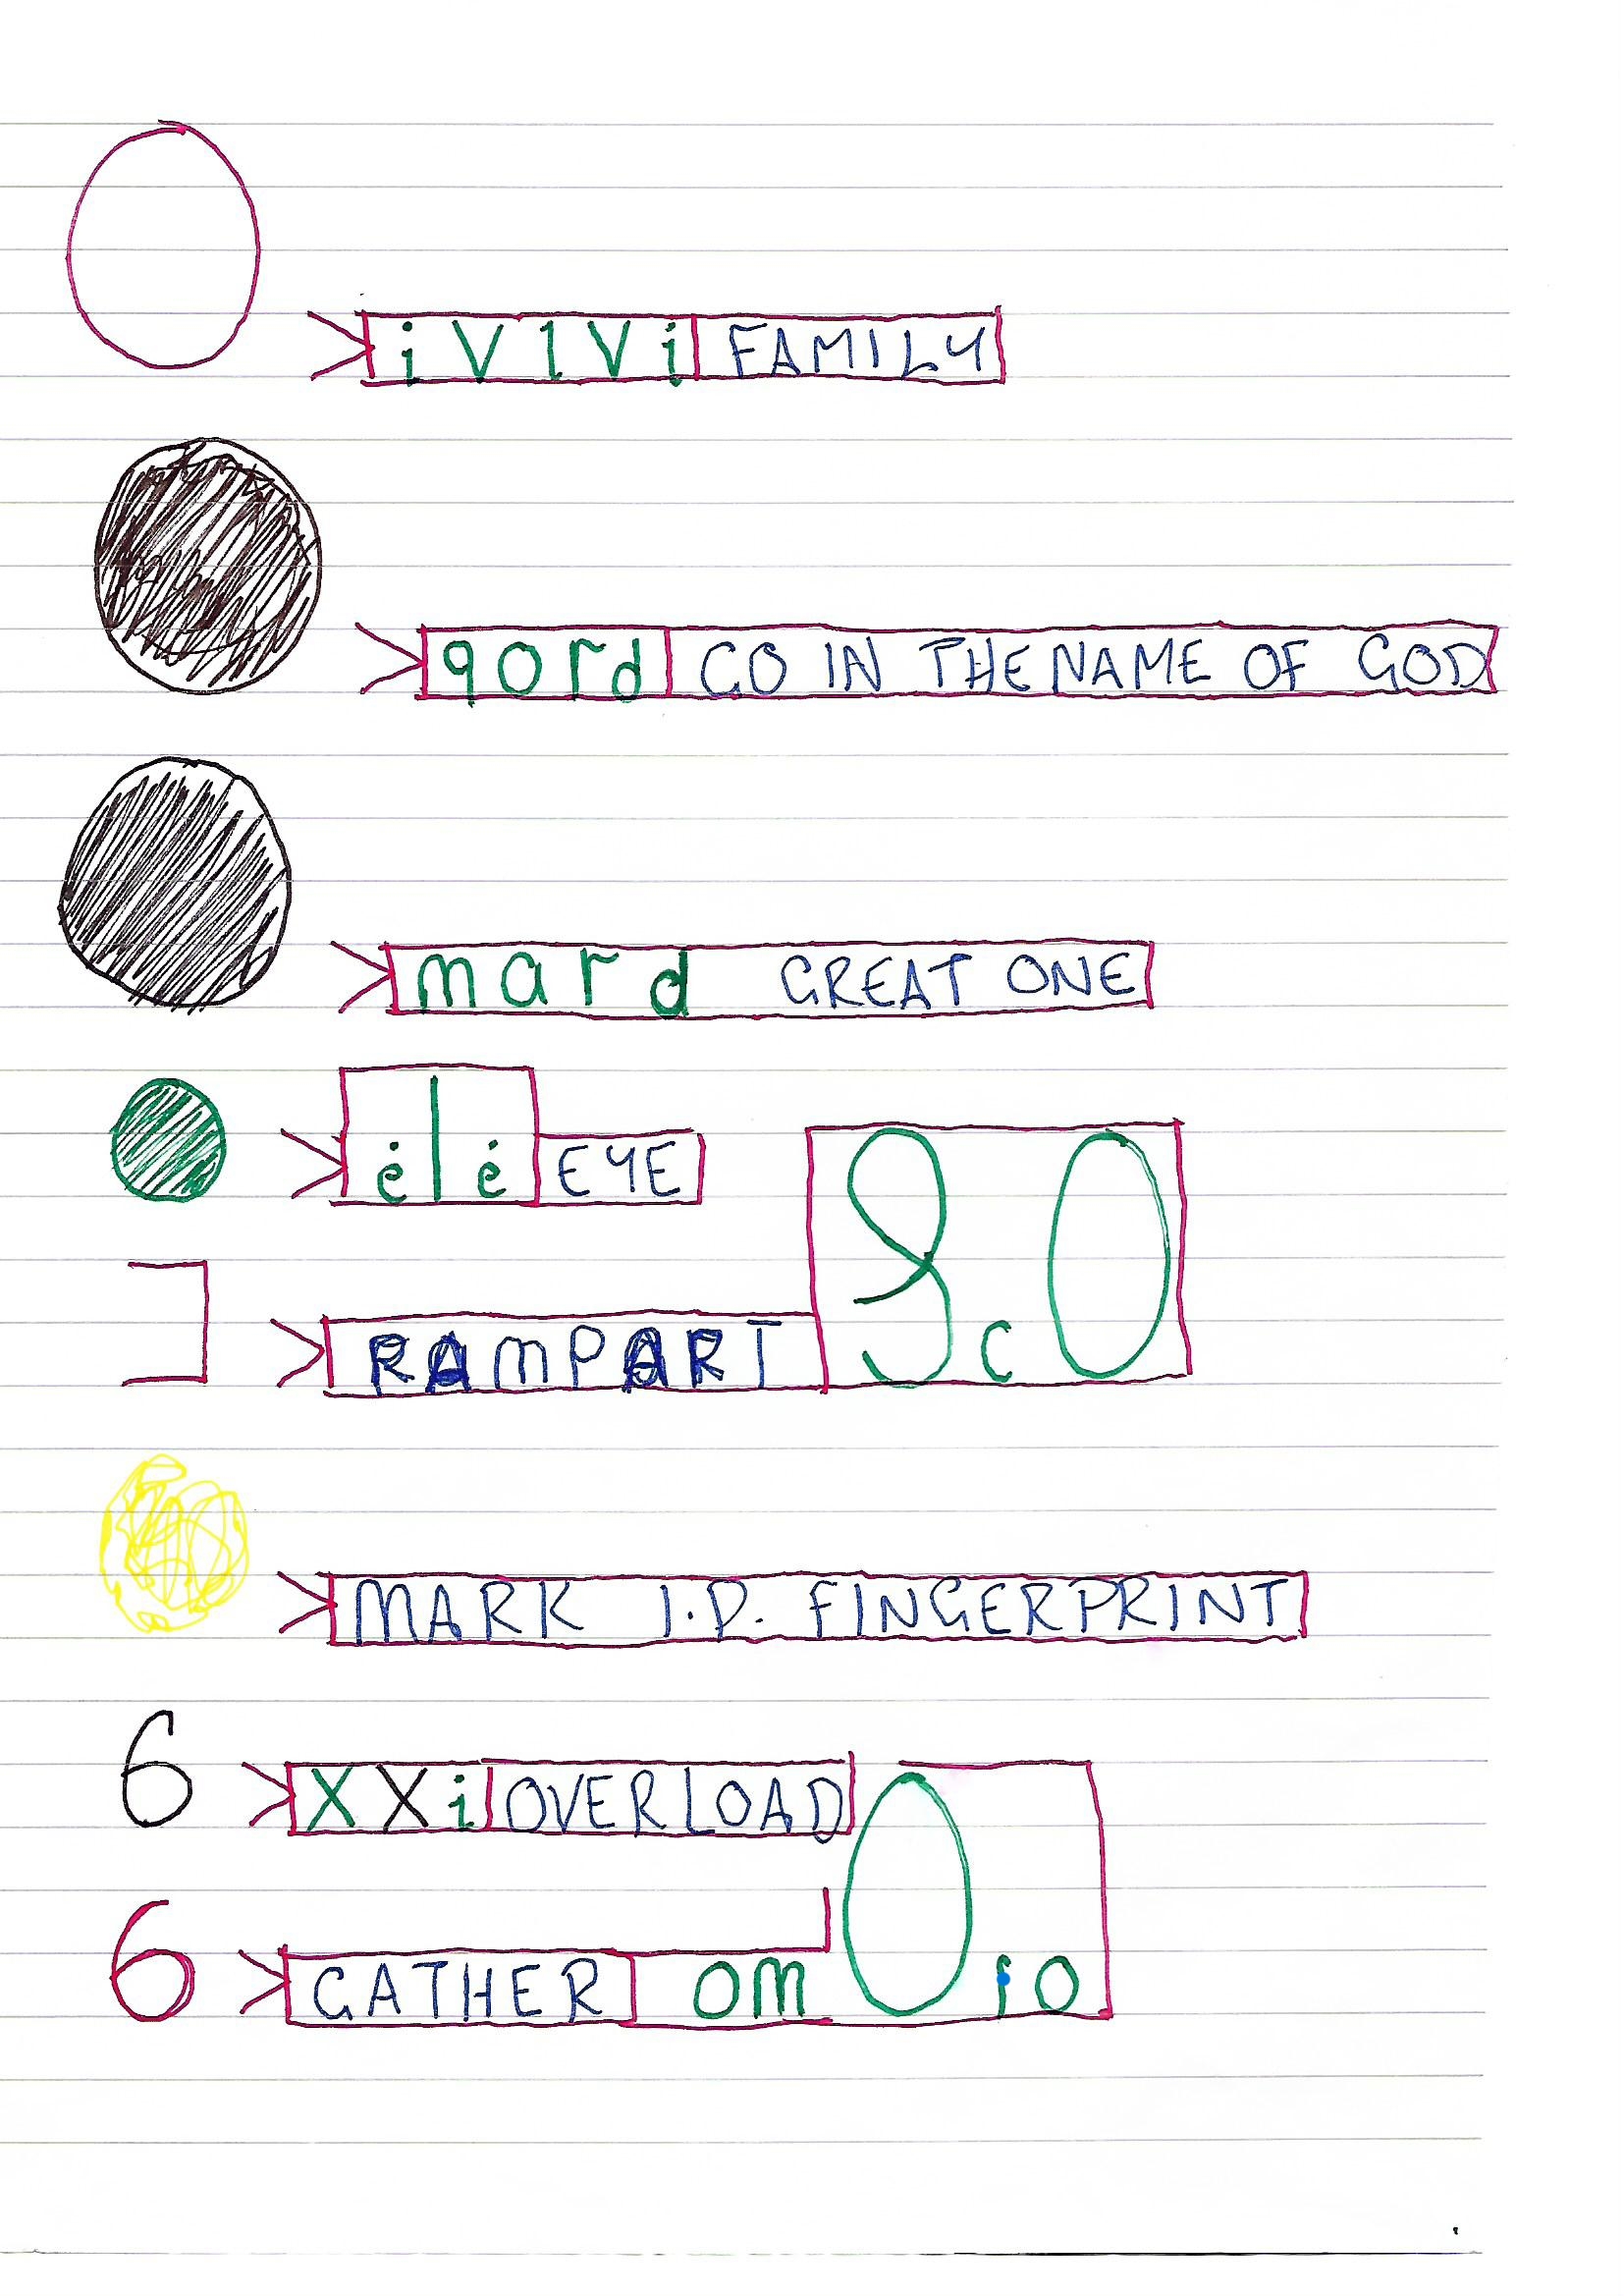 i V 1 V i FAMILY
qord GO IN THE NAME OF GOD
mard GREAT ONE
ėlė EYE
RAMPART c O
MARK I.D. FINGERPRINT
6 XXi OVERLOAD
6 GATHER om O io